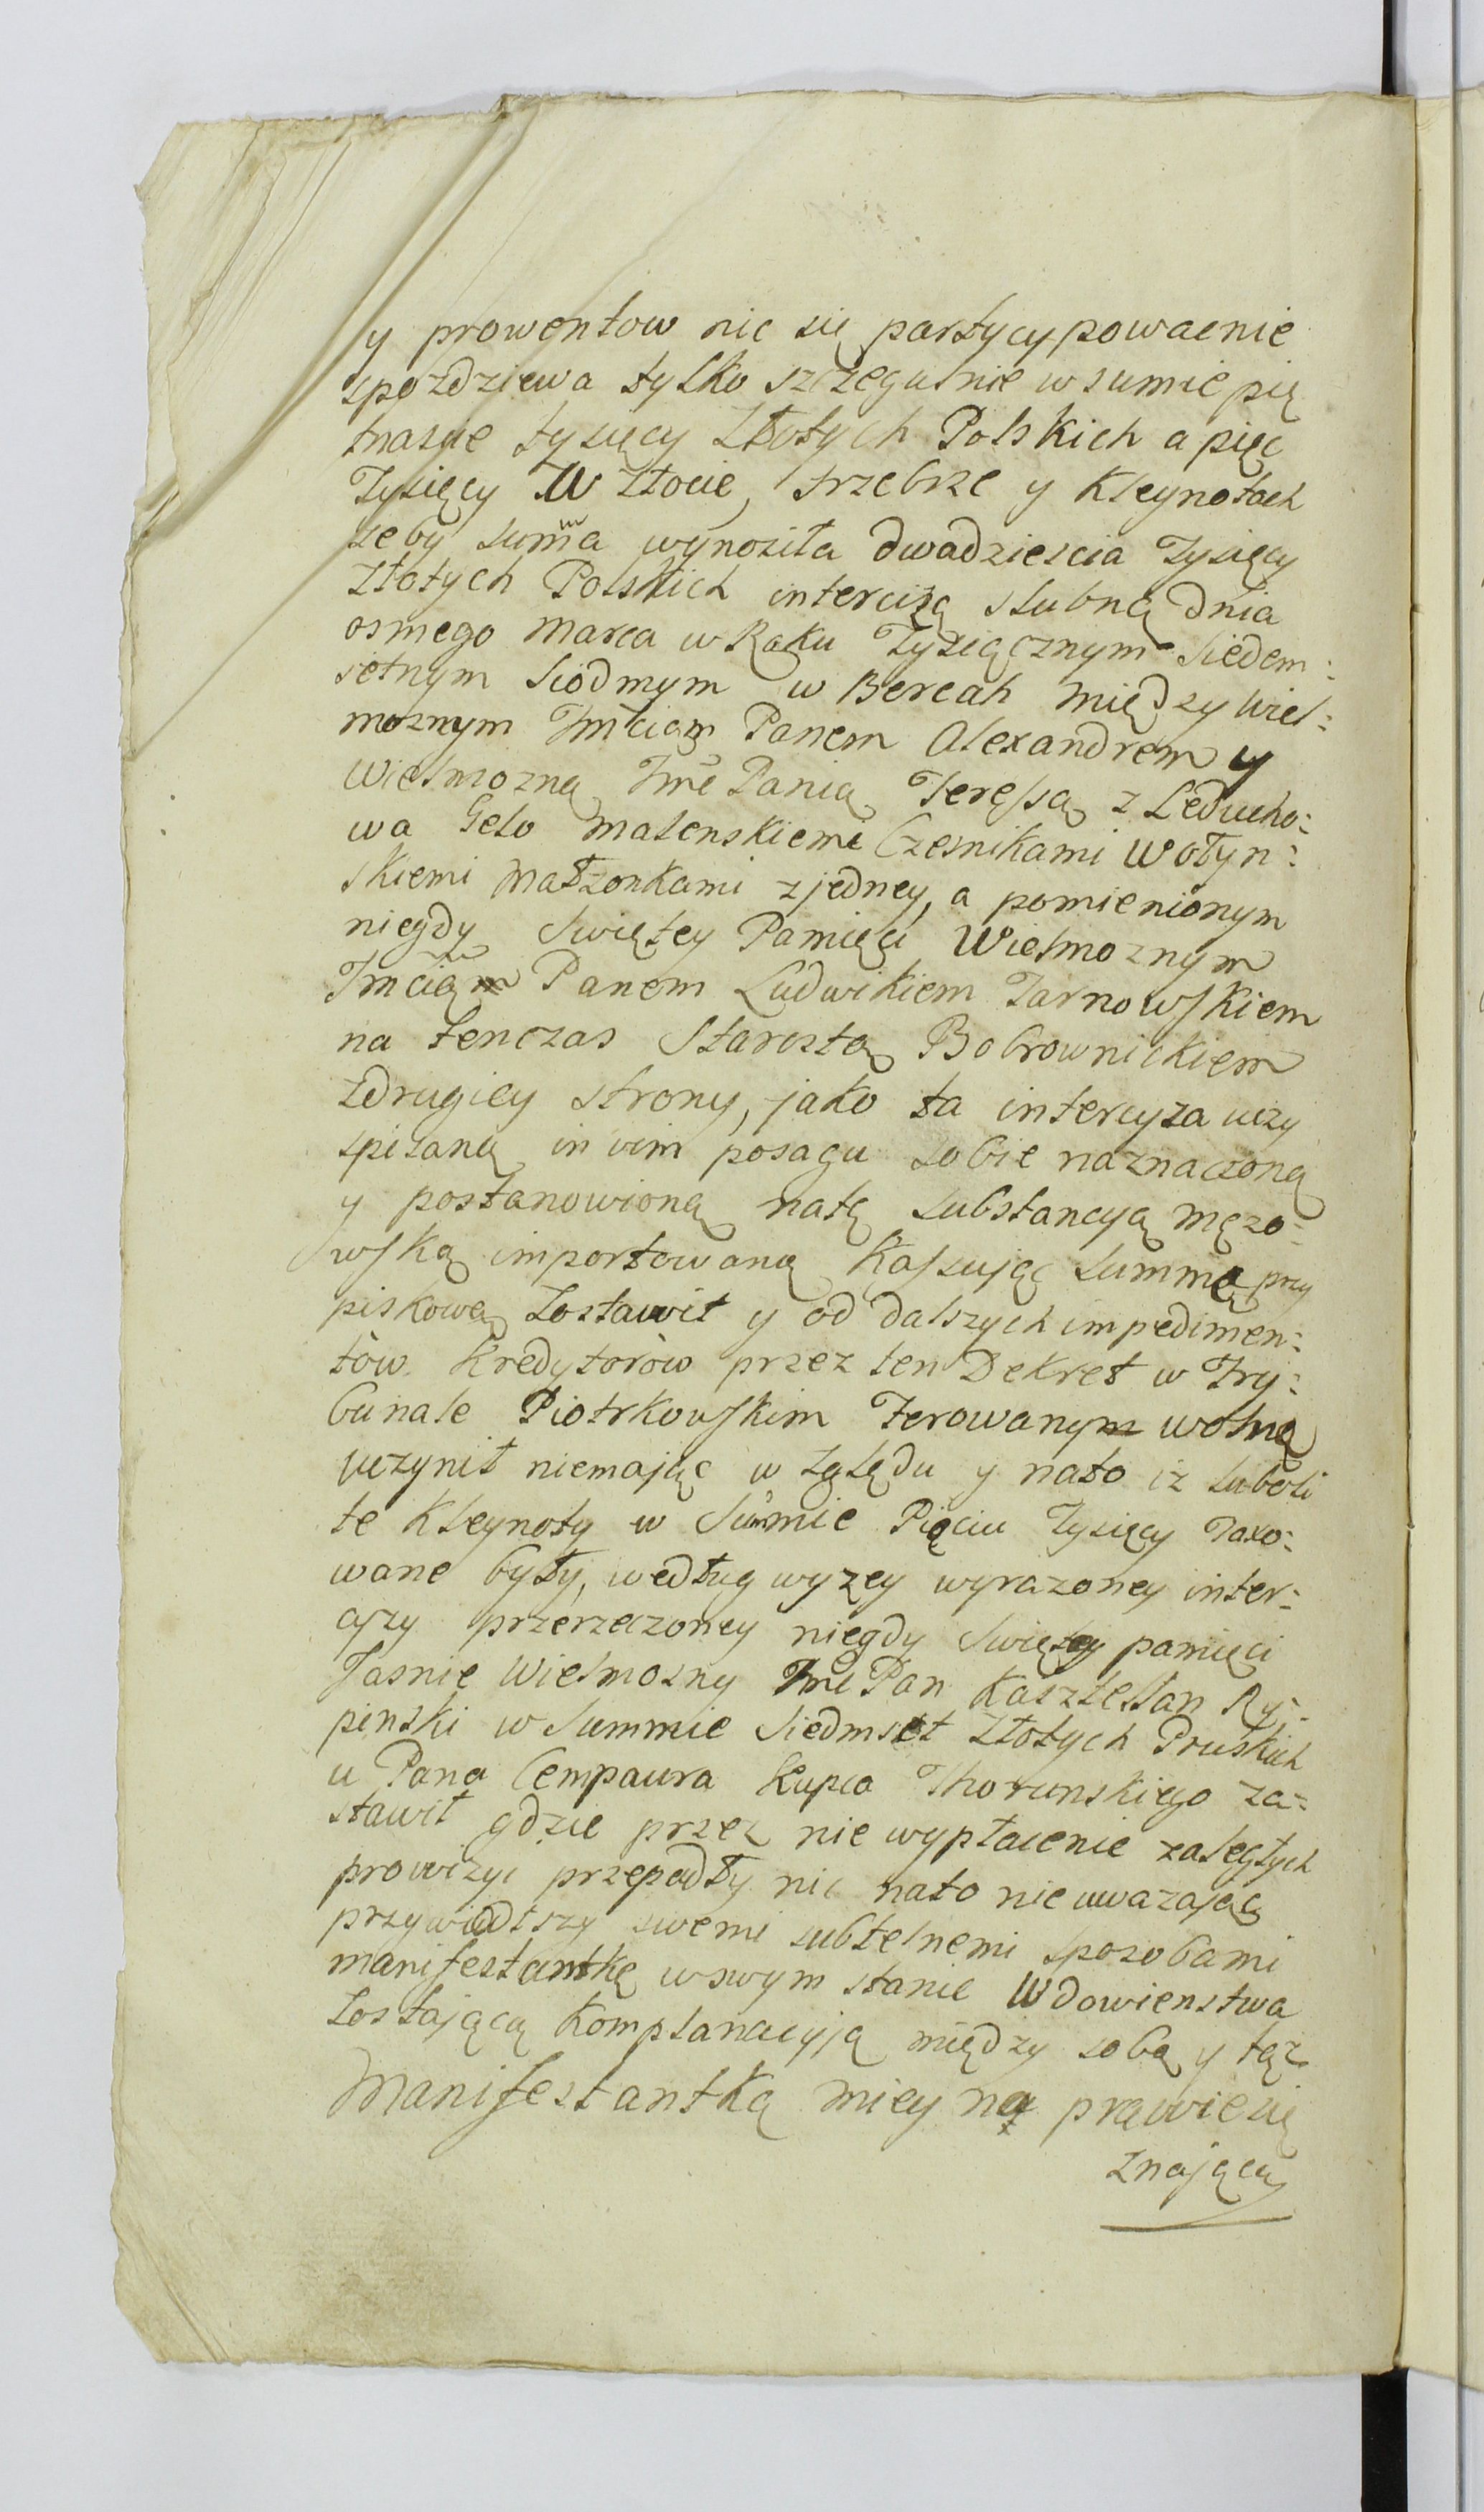 y prowentow nic się partycypowac nie
spoździewa tylko szczegulnie w sumie pię
tnascie tysięcy Złotych Polskich a pięc
Tysięcy W Złocie, srzebrze y Kleynotach
zeby summa wynoziła dwadziescia Tysięcy
Złotych Polskich intercizą slubną dnia
osmego Marca w Roku Tysiącznym Siedem:
setnym Siodmym w Bereah między Wiel:
moznym Imcią Panem Alexandrem y
Wielmozną Imć Panią Teressą z Leducho:
wa Gelo Malenskiemi Czesnikami Wołyn:
skiemi Małzonkami z jedney, a pomienionym
niegdy Swiętey Pamięci Wielmoznym
Imcią Panem Ludwikiem Tarnowskiem
na tenczas Starostą Bobrownickiem
z drugiey strony, jako ta intercyza uczy
spisaną in vim posagu sobie naznaczoną
y postanowioną natę substancyą męzo:
wską importowaną Kassując Summę przy
piskową Zostawił y od dalszych impedimen:
tow Kredytorow przez ten Dekret w Try:
bunale Piotrkowskim Ferowanym wolną
uczynił niemając względu y nato iz luboli
te Kleynoty w Summie Pięciu Tysięcy Taxo:
wane były, według wyzey wyrazoney inter:
cyzy przerzeczoney niegdy Swiętey pamięci
Jasnie Wielmozny Imć Pan Kasztellan Ry:
pinski w Summie Siedmset Złotych Pruskich
u Pana Cempaura Kupca Thorunskiego za:
stawił gdzie przez nie wypłacenie zaległych
prowizyi przepadły nic nato nieuwazając
przywiodszy swemi subtelnemi sposobami
manifestantkę w swym stanie Wdowienstwa
Zostającą Komplanacyją między sobą y tąz
Manifestantką miey na prawie się
znającą